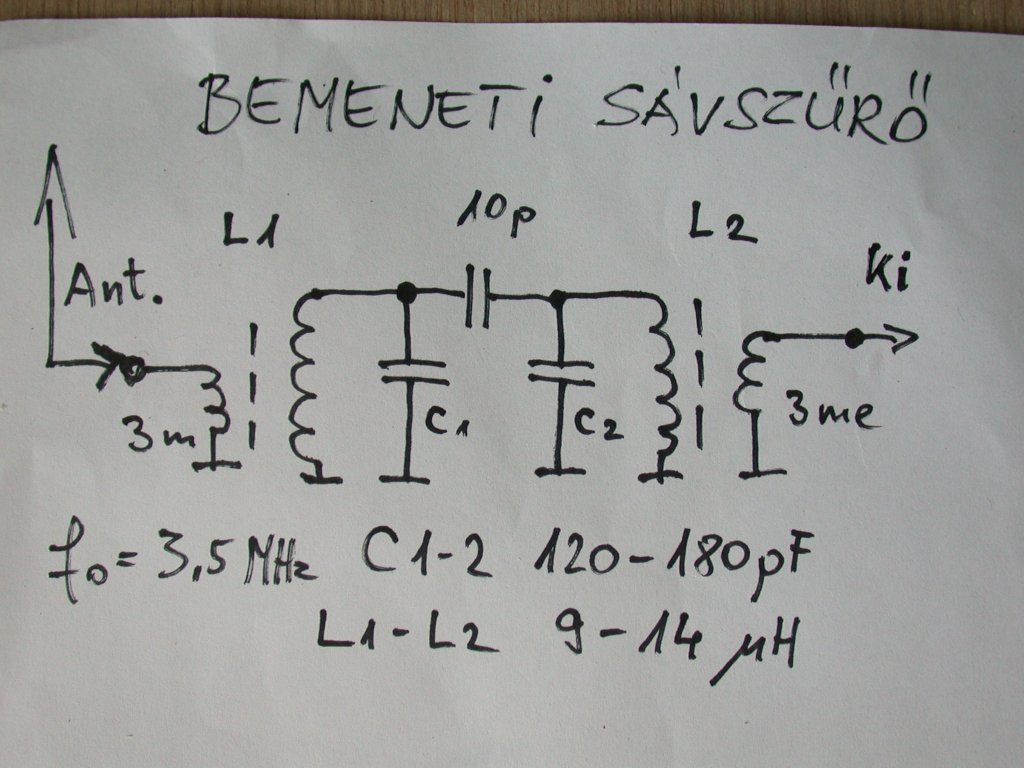 BEMENETI SÁVSZŰRŐ
L1 10p L2
Ant. Ki
3m C1 C2 3me
f0 = 3,5 MHz C1-2 120-180pF
L1-L2 9-14 µH